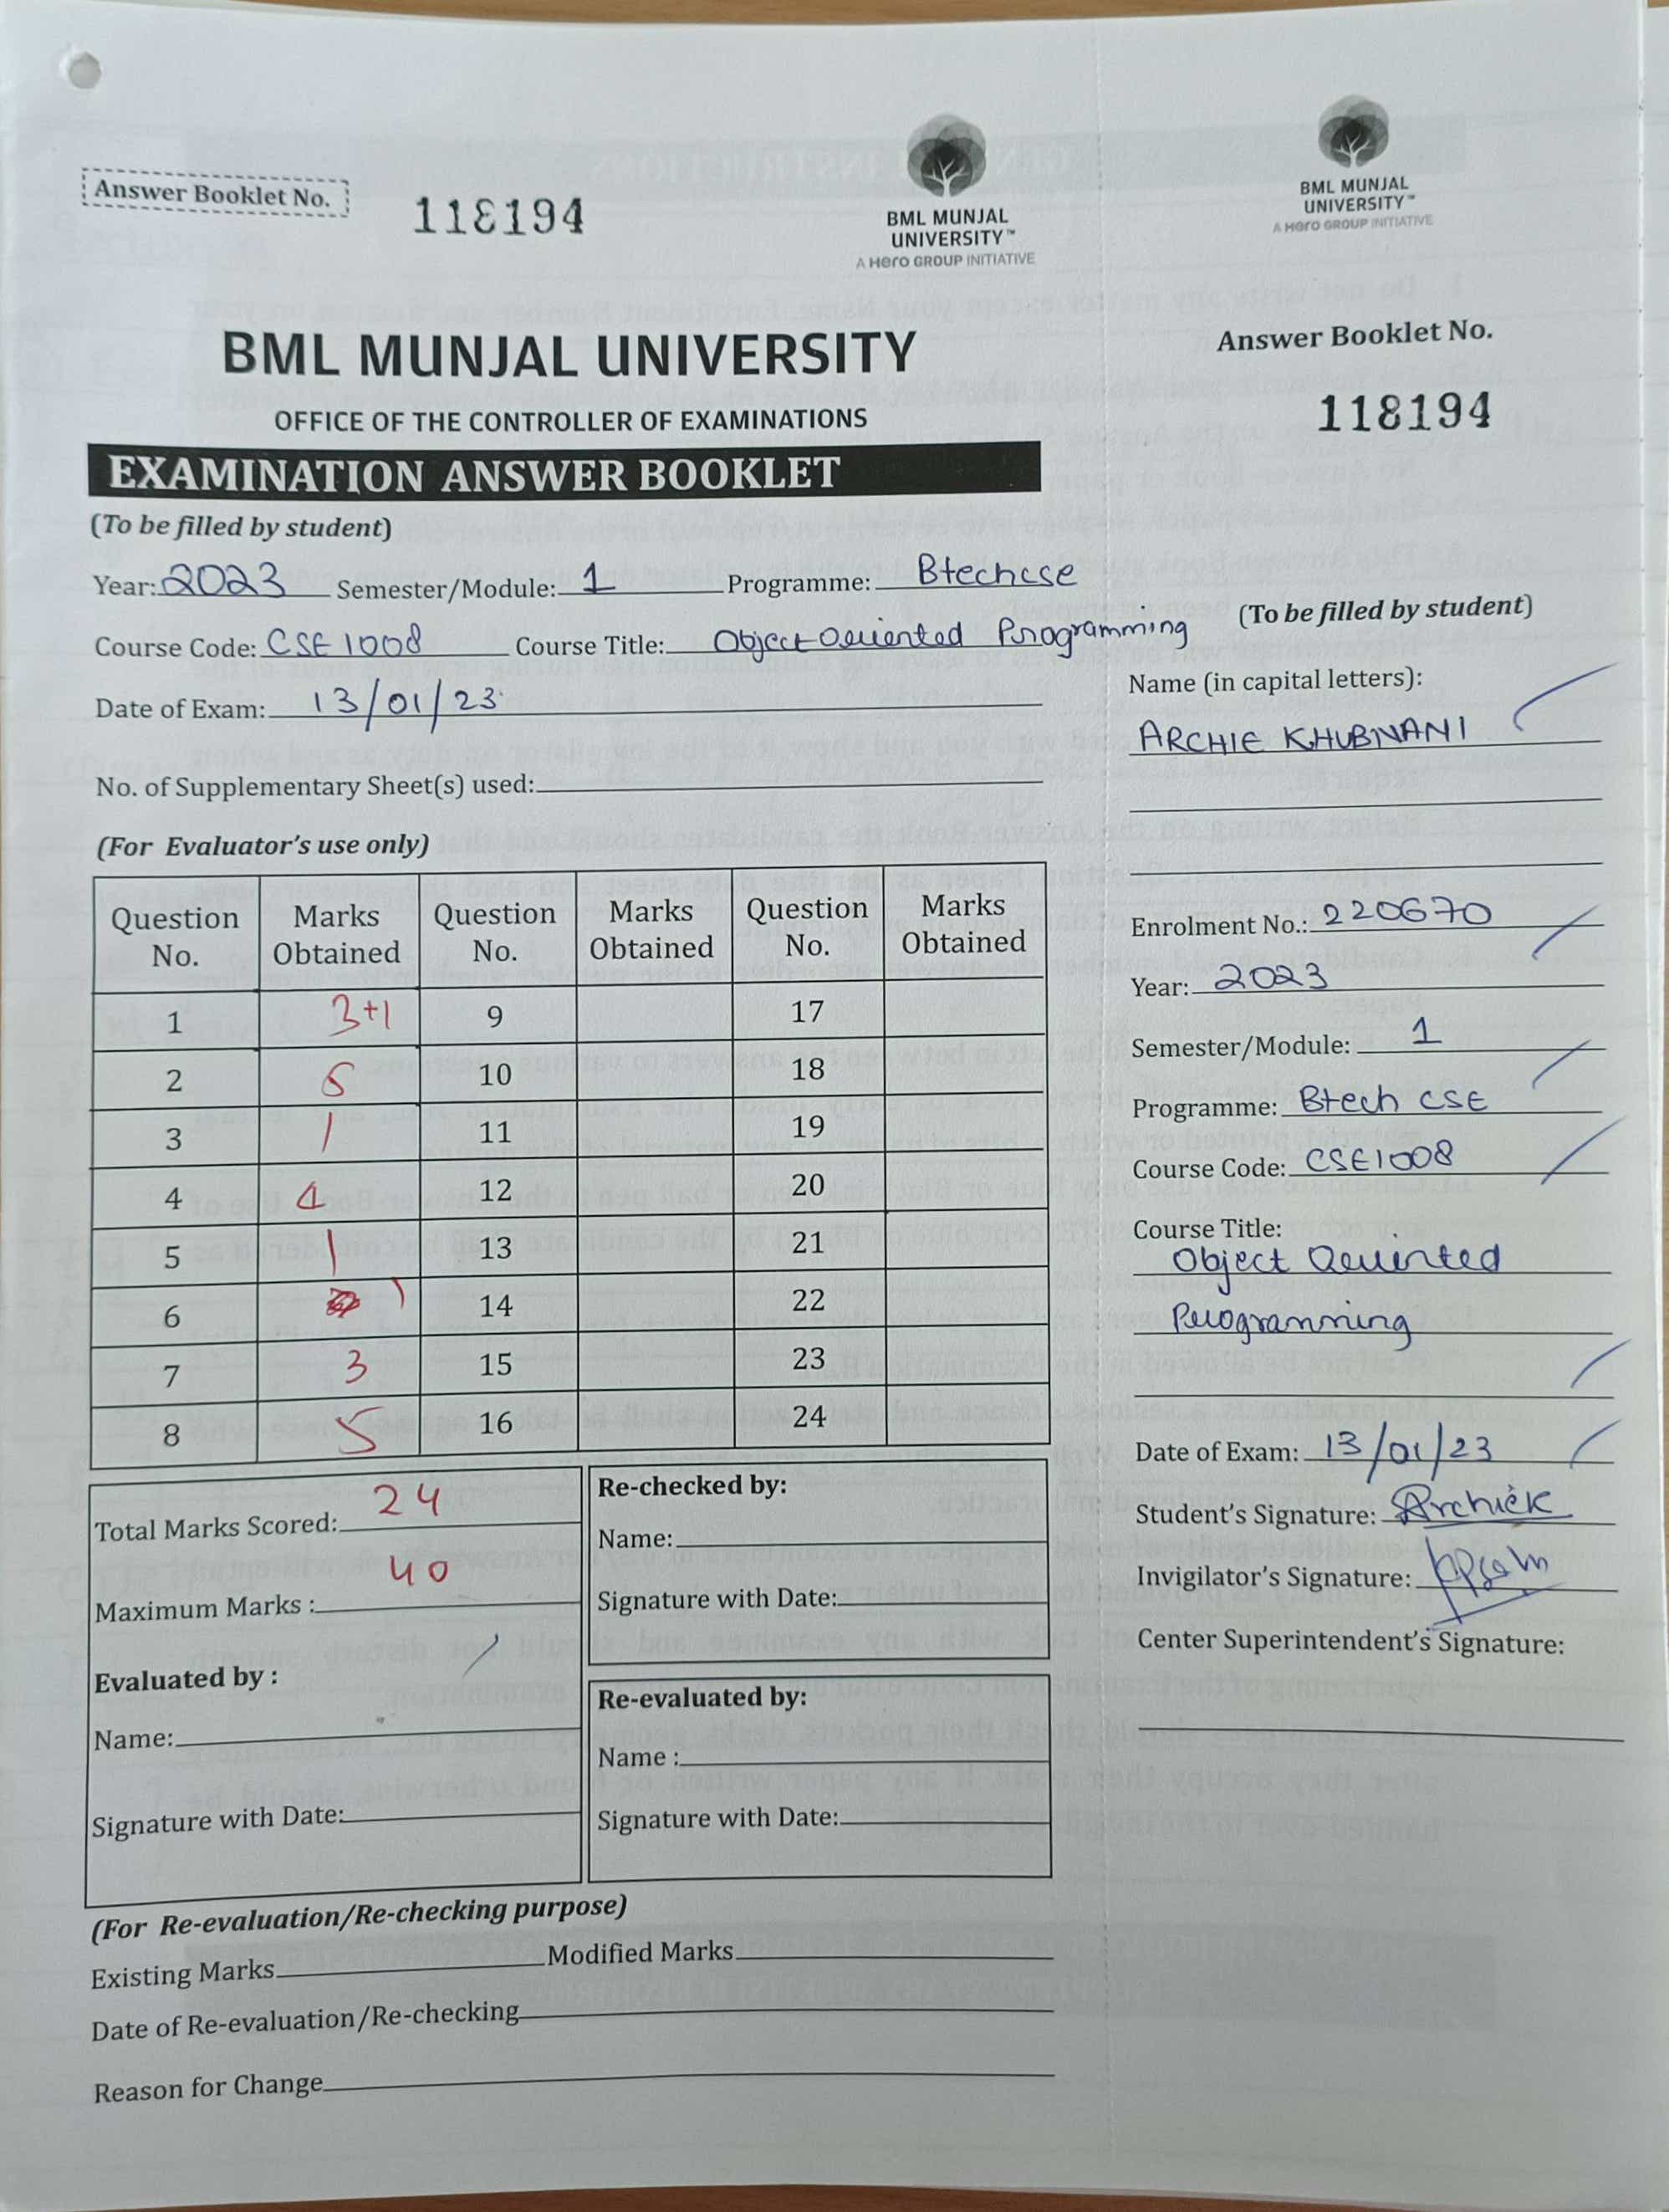 Answer Booklet No. 118194
BML MUNJAL
UNIVERSITY™
A Hero GROUP INITIATIVE
BML MUNJAL
UNIVERSITY™
A Hero GROUP INITIATIVE
BML MUNJAL UNIVERSITY
OFFICE OF THE CONTROLLER OF EXAMINATIONS
EXAMINATION ANSWER BOOKLET
(To be filled by student)
Year: 2023 Semester/Module: 1 Programme: Btechcse
Course Code: CSE1008 Course Title: Object Oriented Programming
Date of Exam: 13/01/23
No. of Supplementary Sheet(s) used:
(For Evaluator's use only)
Question No. Marks Obtained Question No. Marks Obtained Question No. Marks Obtained
1 3+1 9 17
2 5 10 18
3 1 11 19
4 4 12 20
5 1 13 21
6 1 14 22
7 3 15 23
8 5 16 24
Total Marks Scored: 24
Maximum Marks : 40
Evaluated by :
Name:
Signature with Date:
Re-checked by:
Name:
Signature with Date:
Re-evaluated by:
Name :
Signature with Date:
(For Re-evaluation/Re-checking purpose)
Existing Marks Modified Marks
Date of Re-evaluation/Re-checking
Reason for Change
Answer Booklet No.
118194
(To be filled by student)
Name (in capital letters):
ARCHIE KHUBNANI
Enrolment No.: 220670
Year: 2023
Semester/Module: 1
Programme: Btech CSE
Course Code: CSE1008
Course Title:
Object Oriented
Programming
Date of Exam: 13/01/23
Student's Signature: Archiek
Invigilator's Signature:
Center Superintendent's Signature: